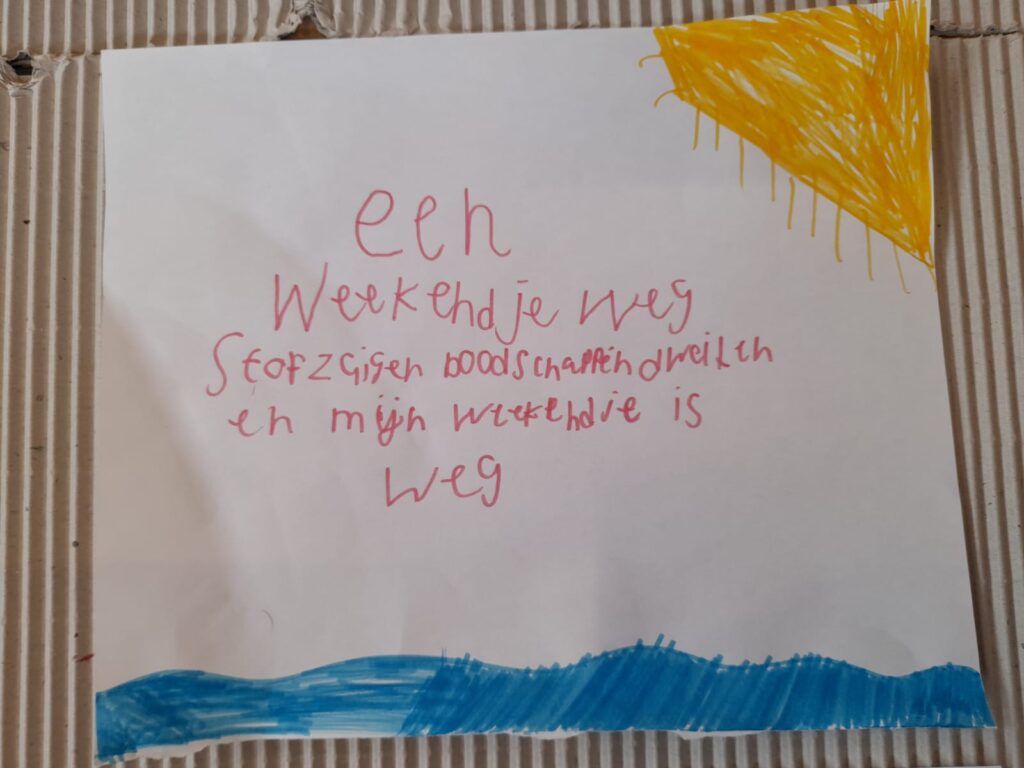 een
Weekendje weg
Stofzgigen boodschappen dweilen
en mijn weekendje is
weg